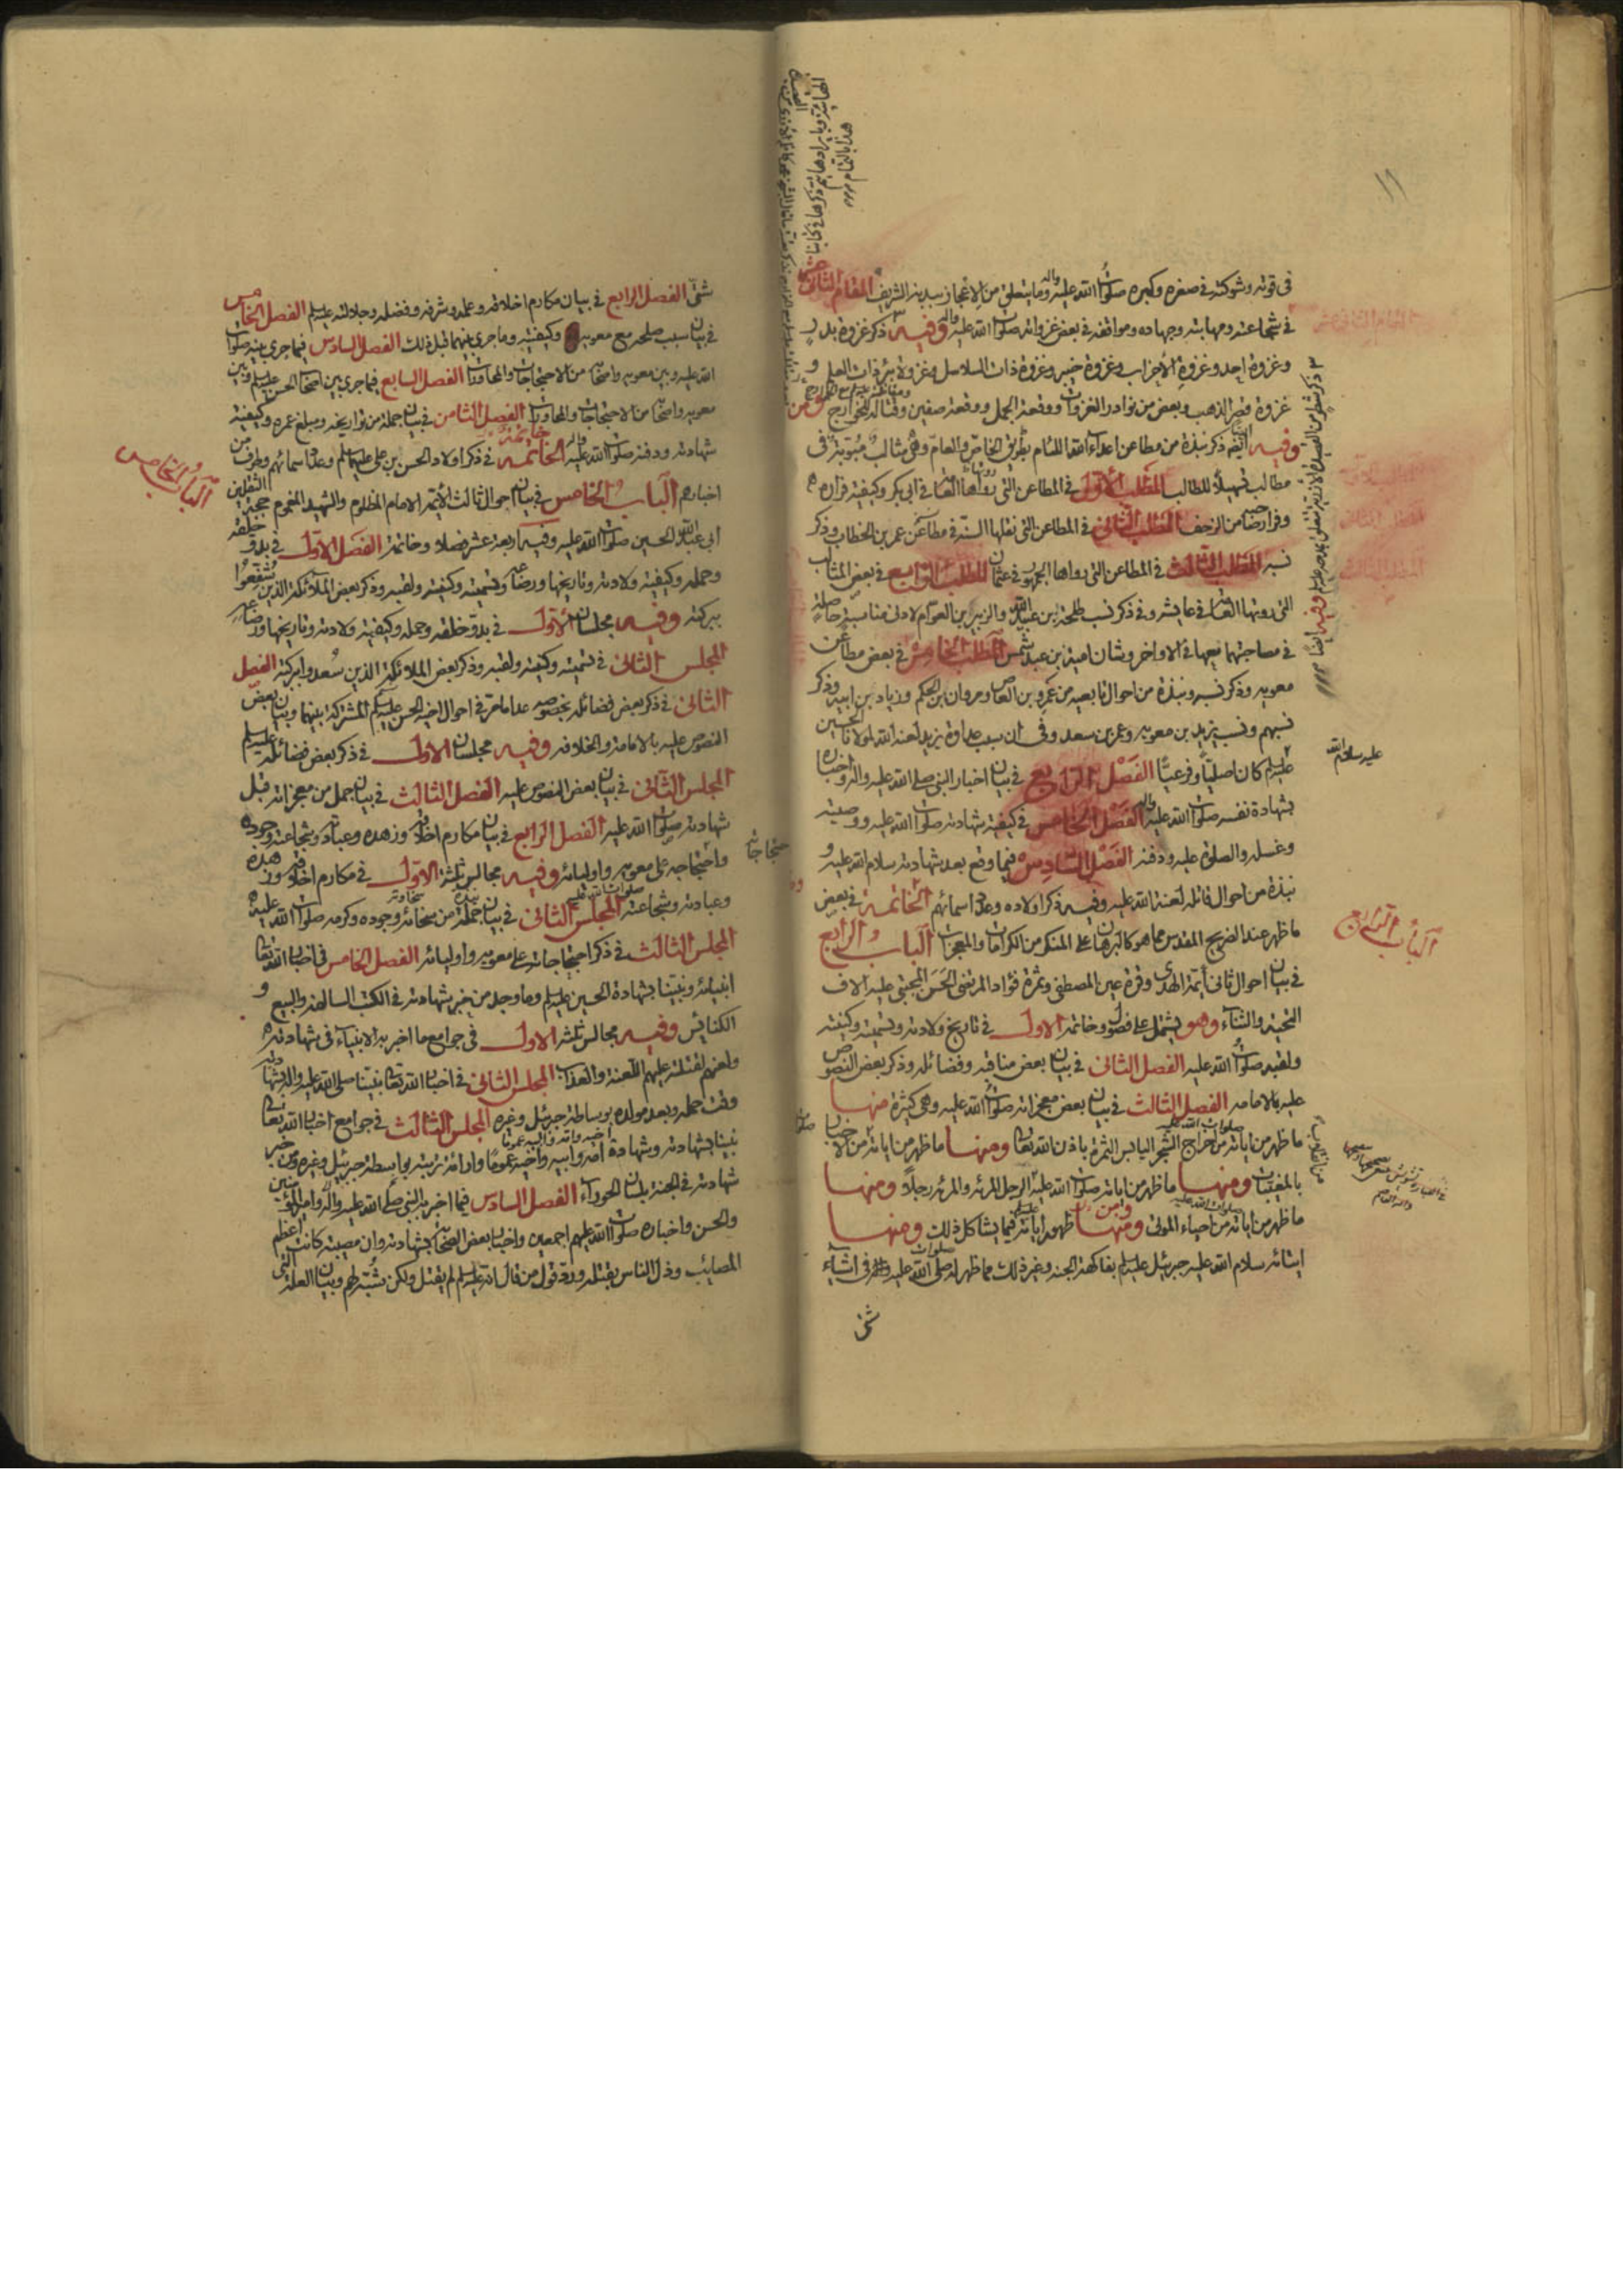 ١١
فى قوته وشوكته فى صغره وكبره صلوات الله عليه واله وما يتعلق من الاعجاز ببدنه الشريف المقام الثانى
فى شجاعته ومهابته وجهاده ومواقفه فى بعض غزواته صلوات الله عليه واله وفيه ذكر غزوة بدر
وغزوة احد وغزوة الاحزاب وغزوة خيبر وغزوة ذات السلاسل وغزوة بئر ذات العلم و
غزوة قصر الذهب وبعض من نوادر الغزوات ووقعة الجمل ووقعة صفين وقتاله للخوارج
وفيه ايضا ذكر نبذة من مطاعن اعداء الله اللئام بطريق الخاص والعام وهى مثالب مبوبة فى
مطالب تسهيلا للطالب المطلب الاول فى المطاعن التى رواها فى ابى بكر وكيفية فراره
وفرار صاحبه من الزحف المطلب الثانى فى المطاعن التى نقلها السنة فى مطاعن عمر بن الخطاب وذكر
نسبه المطلب الثالث فى المطاعن التى رواها الجمهور فى عثمان المطلب الرابع فى بعض المثالب
التى روتها فى عايشه وفى ذكر نسب طلحة بن عبيد الله والزبير بن العوام لادنى مناسبة حاصلة
فى مصاحبتهما معها فى الاواخر وشان امية بن عبد شمس المطلب الخامس فى بعض مطاعن
معويه وذكر نسبه ونبذة من احوال تابعيه من عمرو بن العاص ومروان بن الحكم وزياد بن ابيه وذكر
نسبهم ونسب يزيد بن معويه وعمر بن سعد وفى ان سبب عداوة يزيد لعنه الله لمولانا الحسين
عليه السلم كان اصليا وفرعيا الفصل الرابع فى بيان اخبار النبى صلى الله عليه واله واخباره
بشهادة نفسه صلوات الله عليه واله الفصل الخامس فى كيفية شهادته صلوات الله عليه ووصيته
وغسله والصلوة عليه ودفنه الفصل السادس فيما وقع بعد شهادته سلام الله عليه و
نبذة من احوال قاتله لعنه الله عليه وفيه ذكر اولاده وعدد اسمائهم الخاتمة فى بعض
ما ظهر عند الضريح المقدس مما هو كالبرهان على المنكر من الكرامات والمعجزات الباب الرابع
فى بيان احوال ثانى أيمة الهدى وقرة عين المصطفى وثمرة فؤاد المرتضى الحسن المجتبى عليه الاف
التحية والثناء وهو يشتمل على فصول وخاتمه الاول فى تاريخ ولادته وتسميته وكنيته
ولقبه صلوات الله عليه الفصل الثانى فى بيان بعض مناقبه وفضائله وذكر بعض النصوص
عليه بالامامه الفصل الثالث فى بيان بعض معجزاته صلوات الله عليه وهى كثيرة منها
ما ظهر من اياته من اخراج الشجر اليابس الثمرة باذن الله تعالى ومنها ما ظهر من اياته من الاخبار
بالمغيبات ومنها ما ظهر من اياته صلوات الله عليه الرجل المرئه والمرئه رجلا ومنها
ما ظهر من اياته من احياء الموتى ومنها ظهور اياته فيما يشاكل ذلك ومنها
ايتائه سلام الله عليه جبرئيل عليه السلم بفاكهة الجنه وغير ذلك مما ظهر له صلى الله عليه فى اشياء
شتى
الباب الرابع
شتى الفصل الرابع فى بيان مكارم اخلاقه وعلمه وشرفه وفضله وجلالته عليه السلم الفصل الخامس
فى بيان سبب صلحه مع معويه وكيفيته وما جرى بينهما قبل ذلك الفصل السادس فيما جرى بينه صلوات
الله عليه وبين معويه واصحابه من الاحتجاجات والمحاورات الفصل السابع فيما جرى بين اصحاب الحسن عليه السلم وبين
معويه واصحابه من الاحتجاجات والمحاورات الفصل الثامن فى بيان جملة من تواريخه ومبلغ عمره وكيفية
شهادته ودفنه صلوات الله عليه واله الخاتمه فى ذكر اولاد الحسن بن على عليهما السلم وعدد اسمائهم وطرف من
اخبارهم الباب الخامس فى بيان احوال ثالث الائمه الامام المظلوم والشهيد المغموم حجة الثقلين
ابى عبد الله الحسين صلوات الله عليه وفيه اربعة عشر فصلا وخاتمة الفصل الاول فى بدو خلقه
وحمله وكيفية ولادته وتاريخها ورضاعه وتسميته وكنيته ولقبه وذكر بعض الملائكة الذين شفعوا
ببركته وفيه مجلسان الاول فى بدو خلقه وحمله وكيفية ولادته وتاريخها ورضاعه
المجلس الثانى فى تسميته وكنيته ولقبه وذكر بعض الملائكة الذين سعدوا ببركته الفصل
الثانى فى ذكر بعض فضائله بخصوصه عدا ما مر فى احوال اخيه الحسن عليه السلم المشتركة بينهما وبيان بعض
النصوص عليه بالامامة والخلافه وفيه مجلسان الاول فى ذكر بعض فضائله عليه السلم
المجلس الثانى فى بيان بعض النصوص عليه الفصل الثالث فى بيان جمل من معجزاته قبل
شهادته صلوات الله عليه الفصل الرابع فى بيان مكارم اخلاقه وزهده وعبادته وشجاعته وجوده
واحتجاجه على معويه واوليائه وفيه مجالس ثلثة الاول فى مكارم اخلاقه وزهده
وعبادته وشجاعته المجلس الثانى فى بيان جملة من سخائه وجوده وكرمه صلوات الله عليه
المجلس الثالث فى ذكر احتجاجاته على معويه واوليائه الفصل الخامس فى اخبار الله تعالى
انبيائه ونبينا بشهادة الحسين عليه السلم وما وجد من خبر شهادته فى الكتب السالفه والبيع و
الكنايس وفيه مجالس ثلثه الاول فى جوامع ما اخبر به الانبياء فى شهادته
ولعنهم لقتلته عليهم اللعنة والعذاب المجلس الثانى فى اخبار الله تعالى نبينا صلى الله عليه واله بشهادته
وقت حمله وبعد مولده بوساطة جبرئيل وغيره المجلس الثالث فى جوامع اخبار الله تعالى
نبينا بشهادته وشهادة امه وابيه واخيه عموما وارائة تربته بواسطة جبرئيل وغيره ومن خبر
شهادته فى الجنة بلسان الحوراء الفصل السادس فيما اخبر به النبى صلى الله عليه واله وامير المؤمنين
والحسن واخباره صلوات الله عليهم اجمعين واخبار بعض الصحابه بشهادته وان مصيبته كانت اعظم
المصائب وذل الناس بقتله ورد قول من قال انه عليه السلم لم يقتل ولكن شبه لهم وبيان العلة التى
الباب الخامس